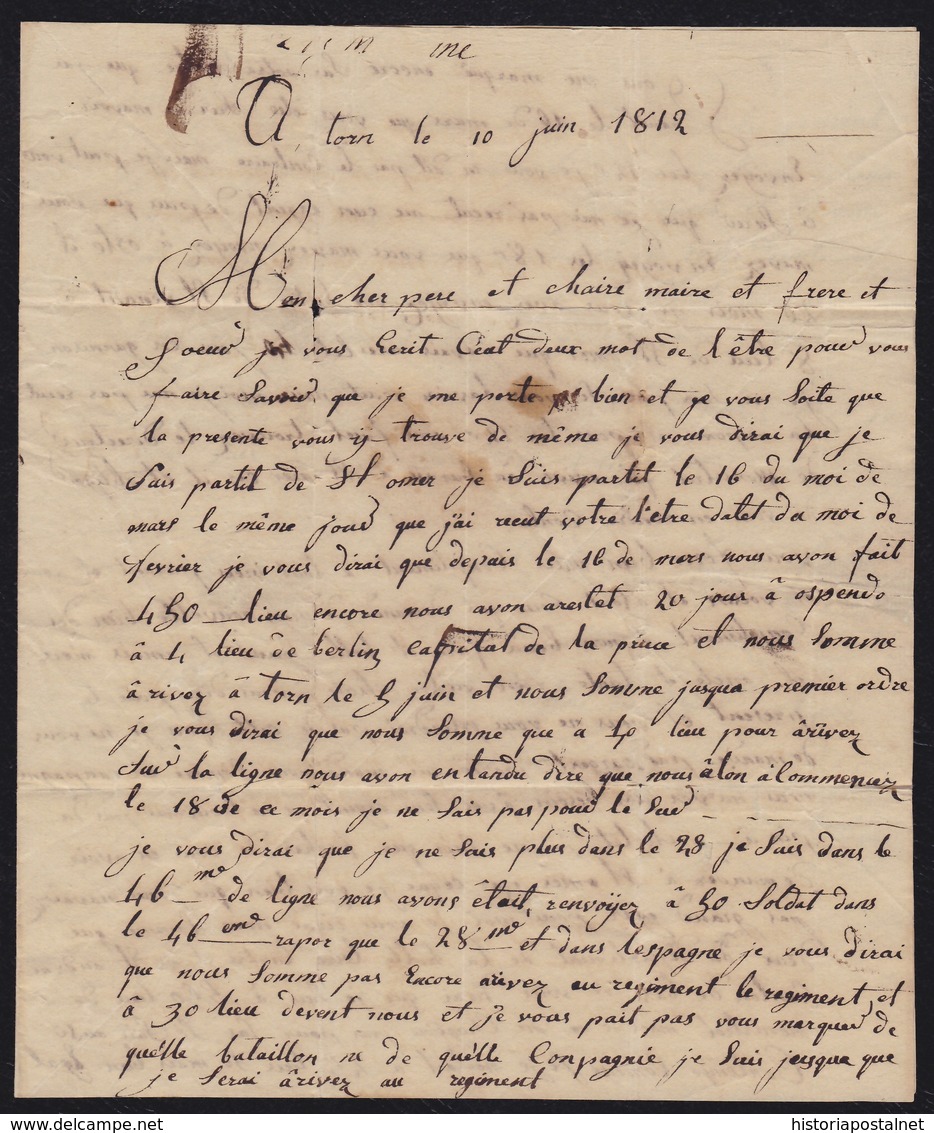 A torn le 10 juin 1812
Mon cher pere et chaire maire et frere et
Soeur je vous Ecrit Ceat deux mot de l'être pour vous
faire Savoir que je me porte bien et je vous Soite que
la presente vous ij trouve de même je vous dirai que je
Suis partit de St omer je Suis partit le 16 du moi de
mars le même jour que j'ai recut votre l'etre datet du moi de
fevrier je vous dirai que depuis le 16 de mars nous avon fait
450 lieu encore nous avon arestet 20 jours â ospendo
â 4 lieu de berlin Capital de la pruce et nous Somme
ârivez â torn le 5 juin et nous Somme jusqua premier ordre
je vous dirai que nous Somme que a 40 lieu pour ârivez
Sur la ligne nous avon entandu dire que nous âlon â Commencez
le 18 de ce mois je ne Sais pas pour le Sur
je vous dirai que je ne Suis plus dans le 28 je Suis dans le
46 me de ligne nous avons êtait renvoÿez â 50 Soldat dans
le 46 em rapor que le 28 me et dans lespagne je vous dirai
que nous Somme pas Encore arivez au regiment le regiment et
â 30 lieu devent nous et je vous pait pas vous marquer de
quélle bataillon ni de quélle Conpagnie je Suis jusqua que
je Serai ârivez au regiment
historiapostalnet
delcampe.net